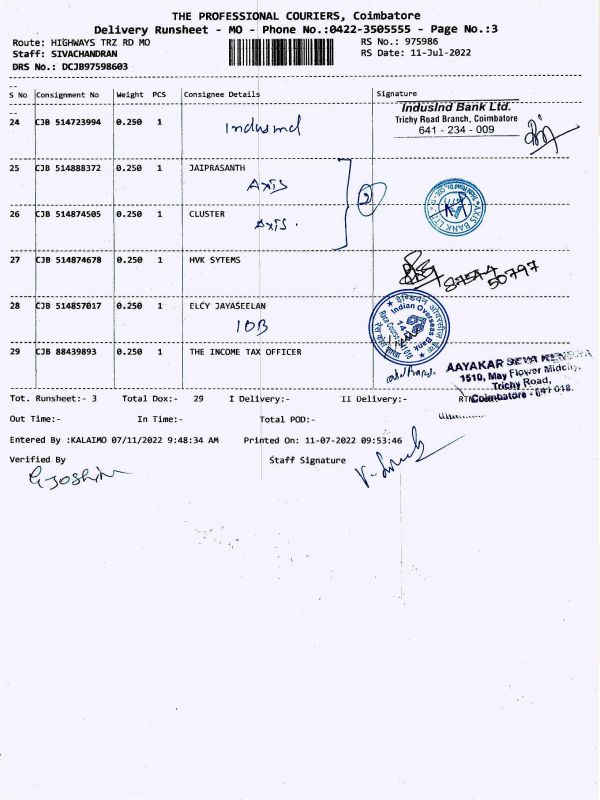 THE PROFESSIONAL COURIERS, Coimbatore
Delivery Runsheet - MO - Phone No.:0422-3505555 - Page No.:3
Route: HIGHWAYS TRZ RD MO RS No.: 975986
Staff: SIVACHANDRAN RS Date: 11-Jul-2022
DRS No.: DCJB97598603
S No Consignment No Weight PCS Consignee Details Signature
IndusInd Bank Ltd.
Trichy Road Branch, Coimbatore
641 - 234 - 009
24 CJB 514723994 0.250 1 Indusind
25 CJB 514888372 0.250 1 JAIPRASANTH
AXIS
2
AXIS BANK LTD
26 CJB 514874505 0.250 1 CLUSTER
AXIS.
27 CJB 514874678 0.250 1 HVK SYTEMS
87544
50797
28 CJB 514857017 0.250 1 ELCY JAYASEELAN
IOB
Indian Overseas Bank
29 CJB 88439893 0.250 1 THE INCOME TAX OFFICER
AAYAKAR SEVA KENDRA
1510, May Flower Midcity,
Trichy Road,
Coimbatore - 641 018.
Tot. Runsheet:- 3 Total Dox:- 29 I Delivery:- II Delivery:-
Out Time:- In Time:- Total POD:-
Entered By :KALAIMO 07/11/2022 9:48:34 AM Printed On: 11-07-2022 09:53:46
Verified By Staff Signature